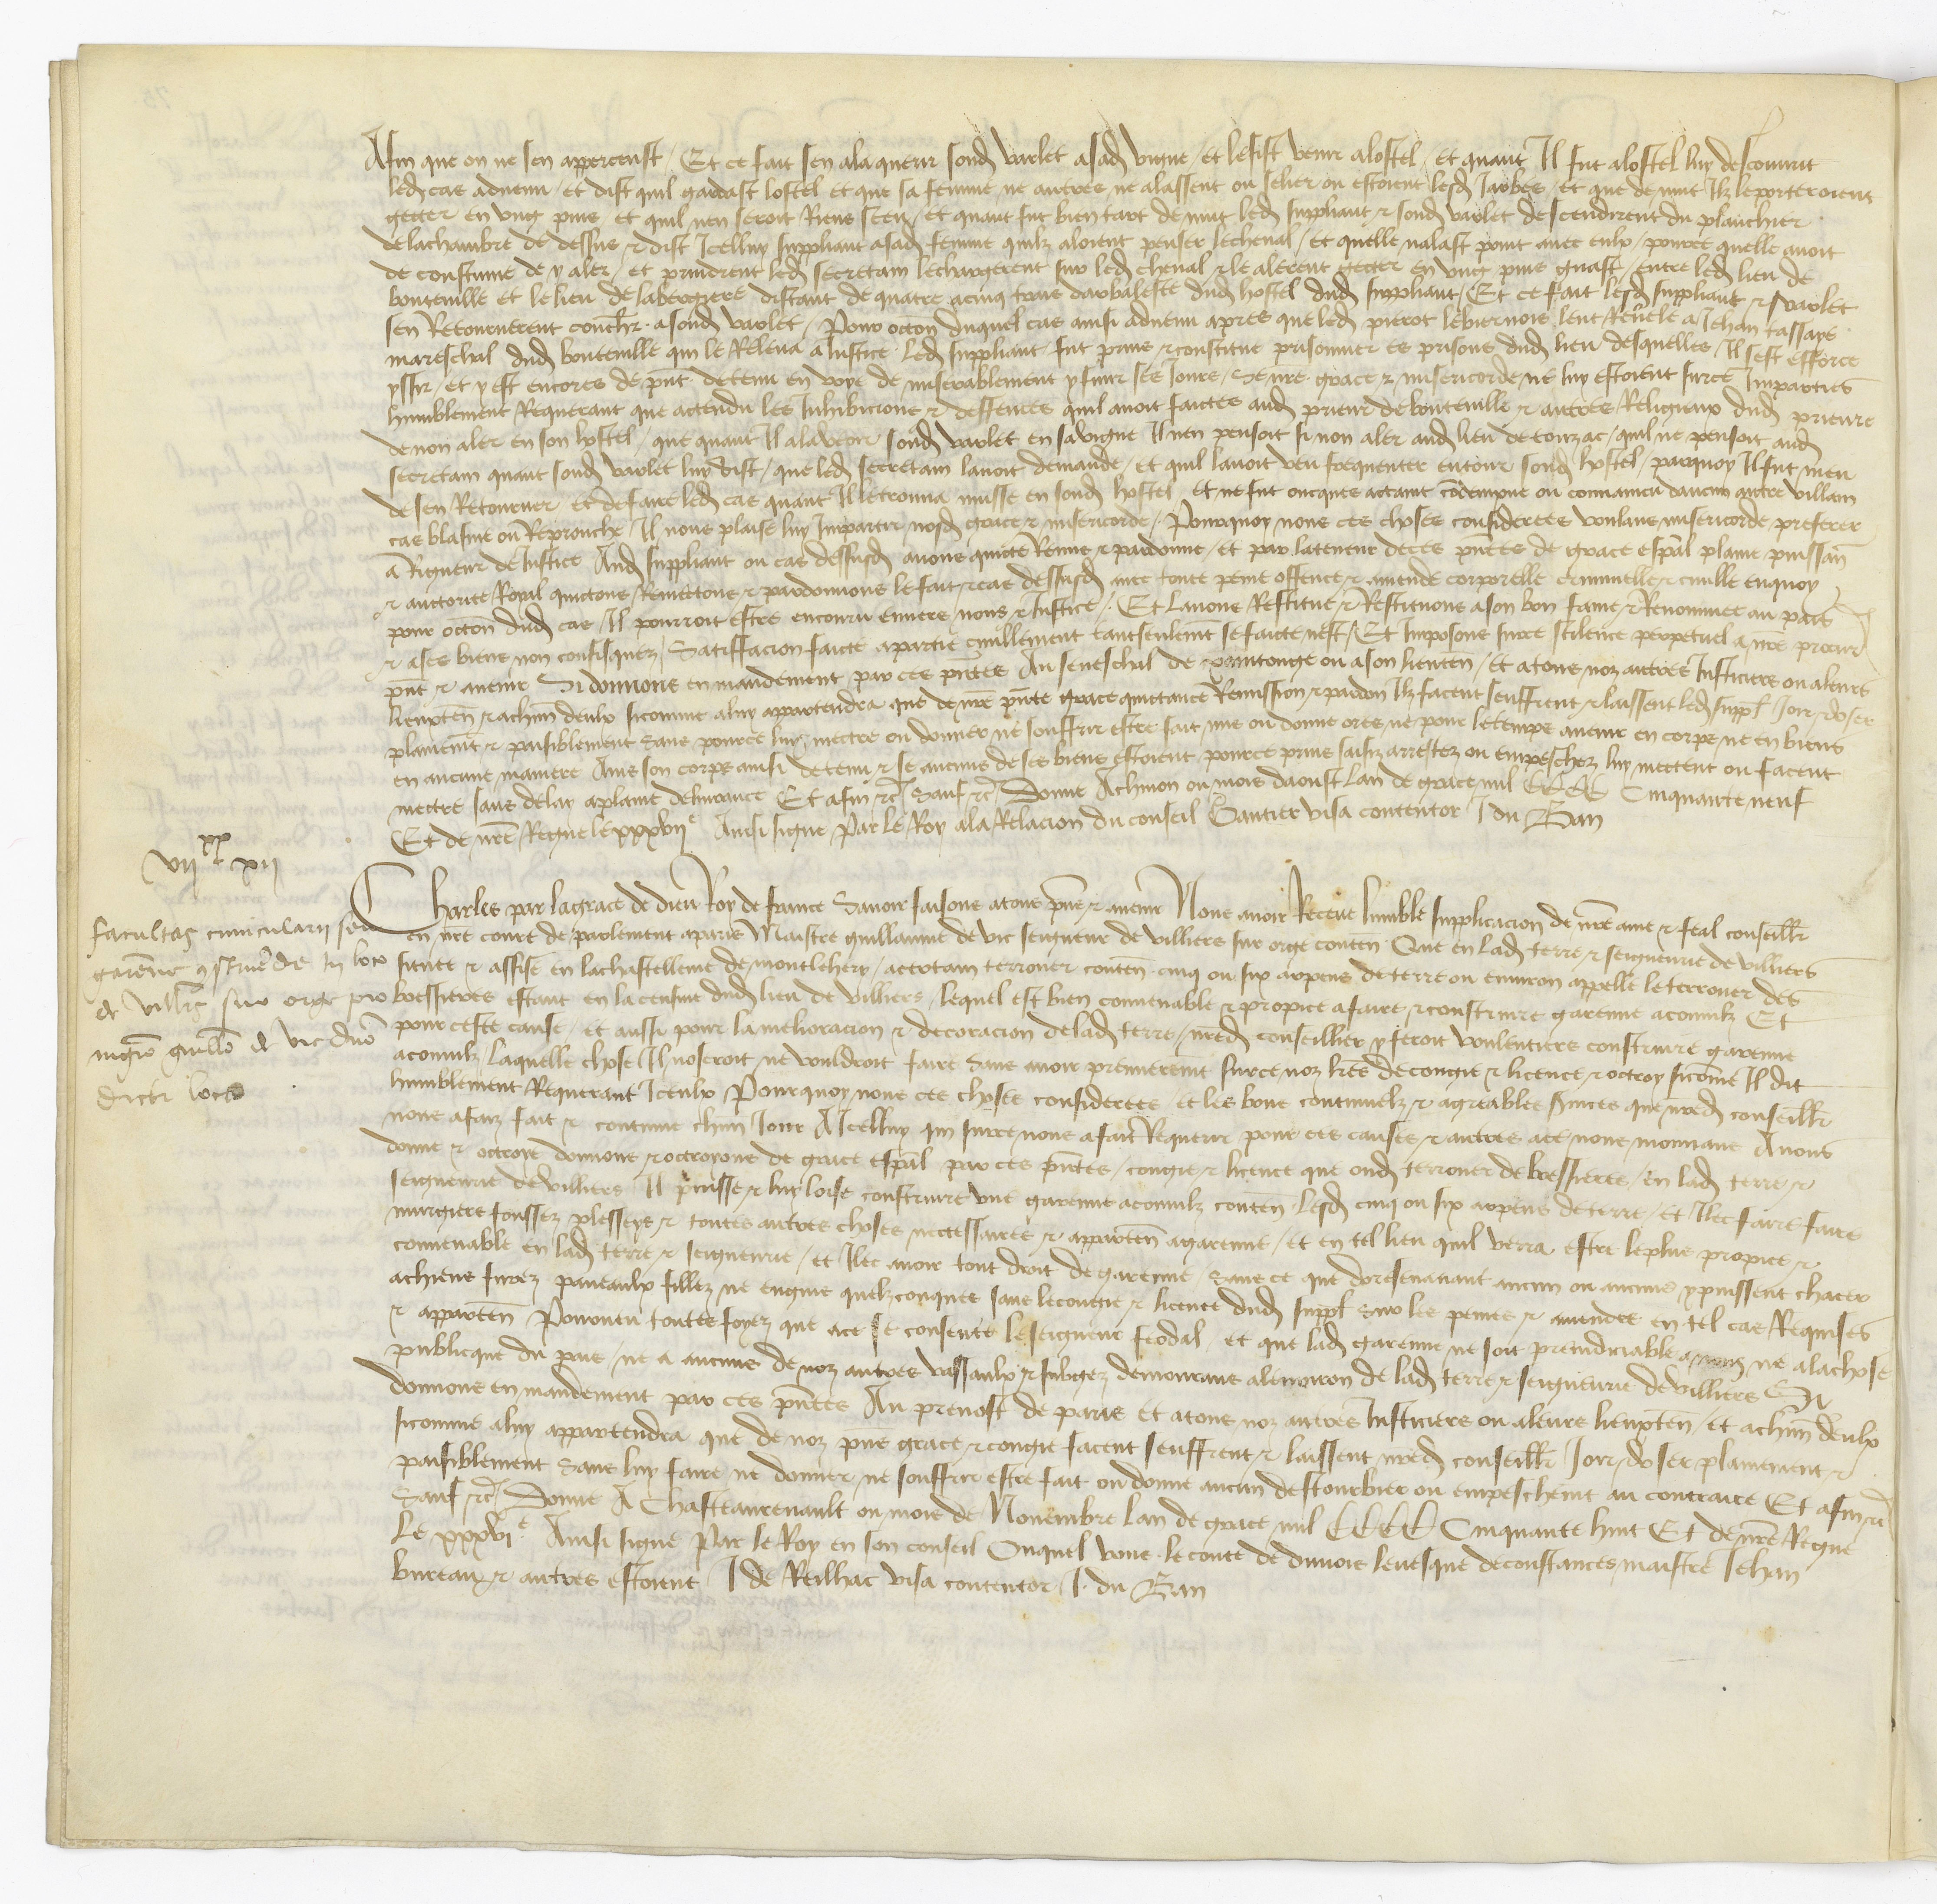 Afin que on ne sen apperceust / Et ce fait sen ala querir sond varlet a sad vigne / et le fist venir a lostel / et quant Il fut a lostel luy descouvrit
led cas advenu / et dist quil gardast lostel et que sa femme ne autres ne alassent ou selier ou estoient lesd Jarbes / et que de nuit Ilz le porteroient
gecter en ung puis et quil nen seroit Riens sceu / et quant fut bien tart de nuit led suppliant & sond varlet descendirent du planchier
de la chambre de dessus & dist Icelluy suppliant a sad femme quilz aloient penser le cheval / et quelle nalast point avec eulx / pource quelle avoit
de coustume de y aler / et prindrent led secretain le chargerent sur led cheval & le alerent gecter en ung puis guast / entre led lieu de
bouteville et le lieu de la bergiere distant de quatre a cinq traiz darbaleste dud hostel dud suppliant / Et ce fait lesd suppliant & varlet
sen Retournerent couchr a sond varlet / Pour occon duquel cas ainsi advenu apres que led pierot le biernois leut Revele a Jehan tassaye
mareschal dud bouteville qui le Releva a Justice led suppliant fut prins & constitue prisonnier es prisons dud lieu desquelles Il sest efforce
yssir / et y est encores de pnt detenu en voye de miserablement y finir ses Jours / Se nre grace & misericorde ne luy estoient sur ce Imparties
humblement Requerant que actendu les Inhibicions & deffences quil avoit faictes aud prieur de bouteville & autres Religieux dud prieure
de non aler en son hostel / que quant Il ala veoir sond varlet en sa vigne Il nen pensoit si non aler aud lieu de touzac / quil ne pensoit aud
secretain quant sond varlet luy dist / que led secretain lavoit demande / et quil lavoit veu frequenter entour sond hostel / parquoy Il fut meu
de sen Retourner et de faire led cas quant Il le trouva musse en sond hostel et ne fut oncques actaint condempne ou convaincu daucun autre villain
cas blasme ou Reprouche / Il nous plaise luy Impartir nosd grace & misericorde / Pourquoy nous ces choses considerees voulans misericorde preferer
a Rigueur de Justice Aud suppliant ou cas dessusd avons quicte Remis & pardonne / et par la teneur de ces pntes de grace espal plaine puissan
& auctorite Royal quictons Remectons & pardonnons le fait & cas dessusd avec toute peine offence & amende corporelle criminelle & civille enquoy
pour occon dud cas Il pourroit estre encouru envers nous & Justice / Et Lavons Restitue & Restituons a son bon fame & Renommee au pais
& a ses biens non confisquez / Satisfacion faicte a partie civillement tant seulemt se faicte nest / Et Imposons surce scilence perpetuel a nre procur
pnt & avenir Si donnons en mandement par ces pntes Au seneschal de xantonge ou a son lieuten / Et a tous noz autres Justiciers ou a leurs
lieuxten & a chun deulx sicomme a luy appartendra que de nre pnte grace quictance Remission & pardon Ilz facent seuffrent & laissent led suppl Joir & user
plainemt & paisiblement sans pource luy mectre ou donner ne souffrir estre fait mis ou donne ores ne pour le temps avenir en corps ne en biens
en aucune maniere Ains son corps ainsi detenu & se aucuns de ses biens estoient pource prins saisiz arrestez ou empeschez luy mectent ou facent
mectre sans delay a plaine delivrance Et afin &c Sauf &c Donne A Chinon ou mois daoust Lan de grace mil CCCC Cinquante neuf
Et de nre Regne le xxxvii e Ainsi signe Par le Roy a la Relacion du conseil Gautier visa contentor J du Ban
vii xx xii
facultas cuniculary seu
garenne construende in loco
de villrs sur orge pro
magro guillo de vic dno
dicti loci
Charles par la grace de dieu Roy de france Savoir faisons a tous pns & avenir Nous avoir Receue lumble supplicacion de nre ame & feal conseillr
en nre court de parlement a paris Maistre guillaume de vic seigneur de villiers sur orge conten Que en lad terre & seigneurie de villiers
situee & assise en la chastellenie de montlehery / a certain terrouer conten cinq ou six arpens de terre ou environ appelle le terrouer des
boessieres estant en la censive dud lieu de villiers / lequel est bien convenable & propice a faire & construire garenne a connilz Et
pour ceste cause / et aussi pour la melioracion & decoracion de lad terre / nred conseillier y feroit voulentiers construire garenne
a connilz laquelle chose Il noseroit ne vouldroit faire sans avoir premieremt surce noz lres de congie & licence & octroy sicomme Il dit
humblement Requerant Iceulx Pourquoy nous ces choses considerees et les bons continuelz & agreables services que nred conseillr
nous a faiz fait & continue chun Jour A Icelluy qui surce nous a fait Requerir pour ces causes & autres a ce nous mouvans Avons
donne & octroye donnons & octroyons de grace espal par ces pntes / congie & licence que oud terrouer de bessieres / en lad terre &
seigneurie de villiers Il puisse & luy loise construire une garenne a connilz conten lesd cinq ou six arpens de terre / et Ilec faire faire
murgiers foussez plesseys & toutes autres choses necessaires & apparten a garenne / et en tel lieu quil verra estre le plus propice &
convenable en lad terre & seigneurie / et Ilec avoir tout droit de garenne / sans ce que doresenavant aucun ou aucuns y puissent chacer
a chiens furez panneaulx fillez ne engins quelzconques sans le congie & licence dud suppl sur les peines & amendes en tel cas Requises
& apparten Pourveu toutesfoyez que a ce se consente le seigneur feodal / et que lad garenne ne soit preiudiciable a nous ne a la chose
publicque du pais / ne a aucuns de noz autres vassaulx & subgez demourans a lenviron de lad terre & seigneurie de villiers Si
donnons en mandement par ces pntes Au prevost de paris et a tous noz autres Justiciers ou a leurs lieuxten / et a chun deulx
sicomme a luy appartendra que de noz pns grace & congie facent seuffrent & laissent nred conseillr Joir & user plainement &
paisiblement sans luy faire ne donner ne souffrir estre fait ou donne aucun destourbier ou empeschemt au contraire Et afin &c
Sauf &c Donne A Chasteauregnault ou mois de Novembre Lan de grace mil CCCC Cinquante huit Et de nre Regne
Le xxxvi e Ainsi signe Par le Roy en son conseil Ouquel vous le conte de dunois levesque de constances maistre Jehan
bureau & autres estoient J de Reilhac visa contentor J. du Ban